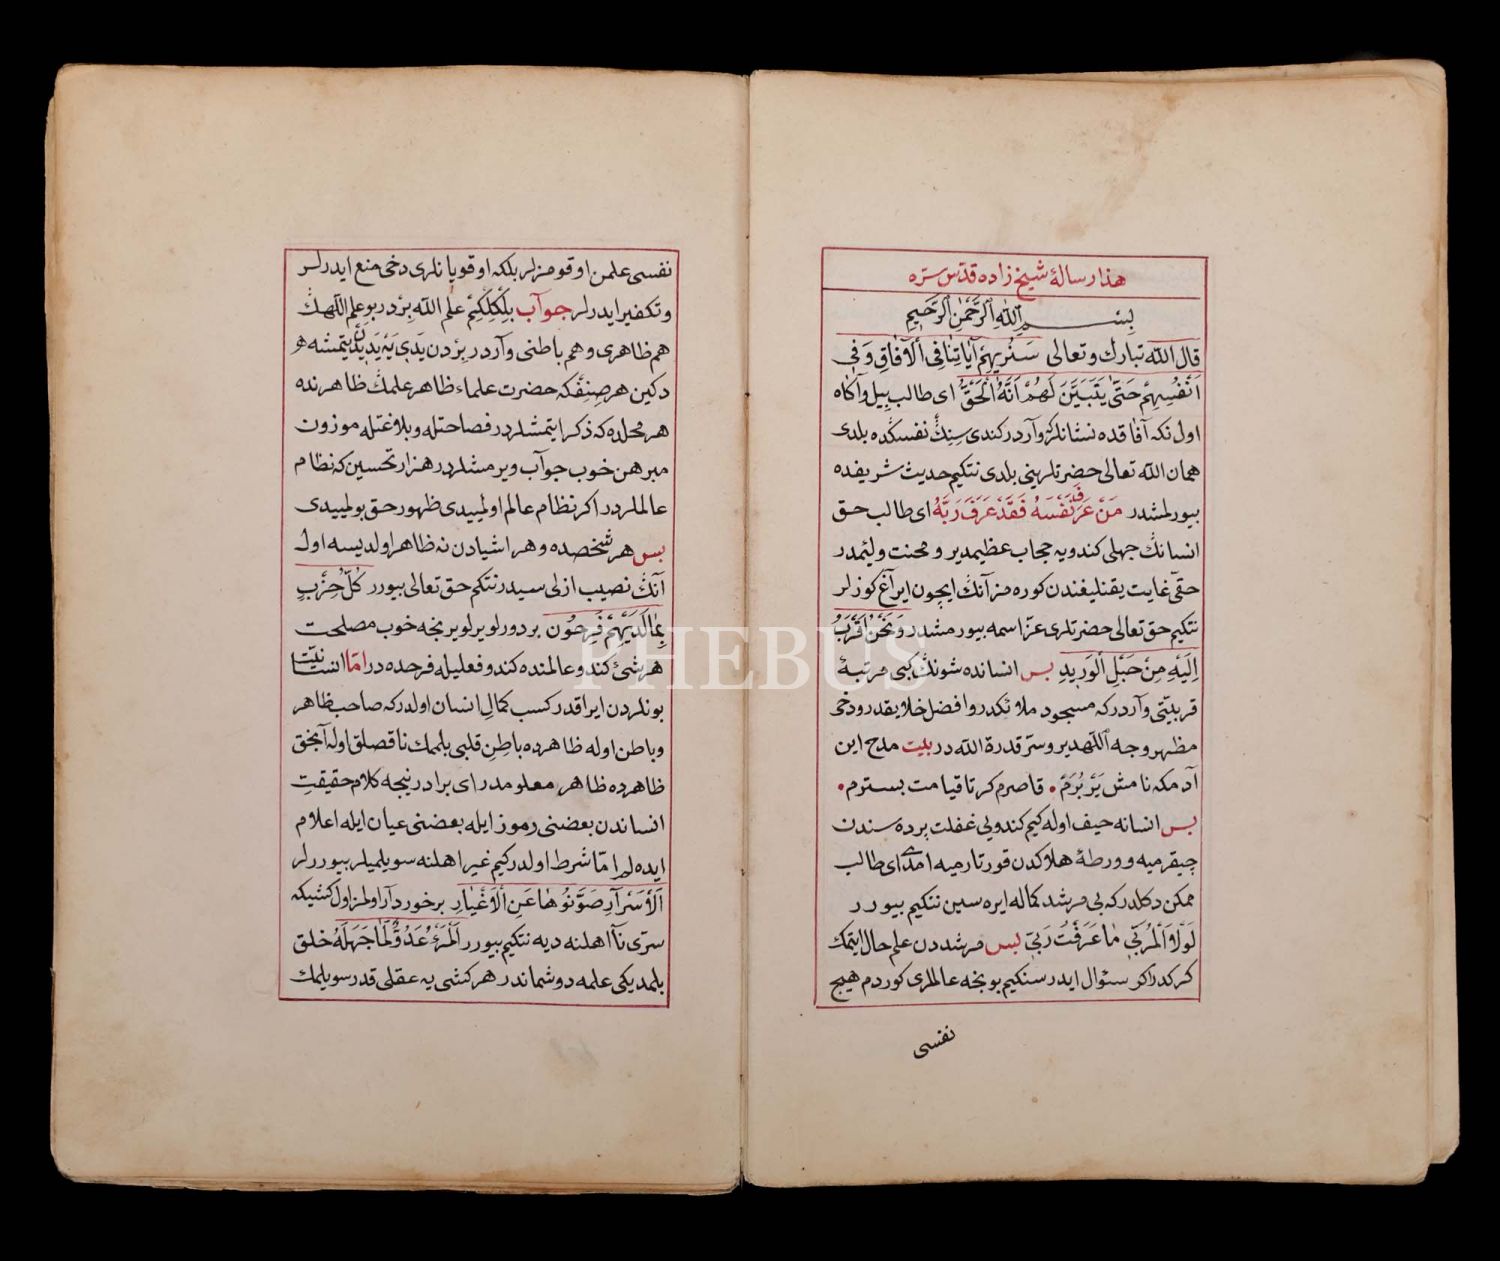 هذا رسالۀ شیخ زاده قدس سره
بسم الله الرحمن الرحیم
قال الله تبارك وتعالی سنریهم آیاتنا فی الآفاق وفی
انفسهم حتی یتبین لهم انه الحق ای طالب بیل وآکاه
اول نکه آفاقده نشانلرکز وآردر کندی سنك نفسکده بلدی
همان الله تعالی حضرتلرینی بلدی نتکیم حدیث شریفده
بیورلمشدر من عرف نفسه فقد عرف ربه ای طالب حق
انسانك جهلی کندویه حجاب عظیمدیر و محنت ولیمدر
حقی غایت یقنلیغندن کوره مز آنك ایچون ایراغ کوزلر
نتکیم حق تعالی حضرتلری عزاسمه بیورمشدر ونحن اقرب
الیه من حبل الورید بس انسانده شونك کبی مرتبۀ
قربیتی وآردر که مسجود ملائکدر وافضل خلایقدر ودخی
مظهر وجه اللهدیر وسر قدرة الله در بیت مدح این
آدمکه نامش یر برم • قاصرم کر تا قیامت بسترم •
بس انسانه حیف اوله کیم کندویی غفلت پرده سندن
چیقرمیه و ورطۀ هلاکدن قورتارمیه امدی ای طالب
ممکن دکلدر که بی مرشد کماله ایره سین نتکیم بیورر
لولا المربی ما عرفت ربی بس مرشددن علم حال ایتمك
کرکدر اکر سئوال ایدرسنکیم بونجه عالملری کوردم هیچ
نفسی
نفسی علمن اوقومزلر بلکه اوقویانلری دخی منع ایدرلر
وتکفیر ایدرلر جوآب بلکلکم علم الله بردر بو علم اللهك
هم ظاهری وهم باطنی وآردر بردن یدی یه یدیدن یتمشه هو
دکین هر صنفکه حضرت علماء ظاهر علمك ظاهرنده
هر محلده که ذکر ایتمشلردر فصاحتله وبلاغتله موزون
مبرهن خوب جوآب ویرمشلردر هزار تحسین که نظام
عالملردر اکر نظام عالم اولمییدی ظهور حق بولمییدی
بس هر شخصده وهر اشیادن نه ظاهر اولدیسه اول
آنك نصیب ازلی سیدر نتکم حق تعالی بیورر کل حزب
بما لدیهم فرحون بر دورلو یرلو یرنجه خوب مصلحت
هر شئ کندو عالمنده کندو فعلیله فرحده در اما انسانیت
بونلردن ایراقدر کسب کمال انسان اولدر که صاحب ظاهر
وباطن اوله ظاهرده باطن قلبی بلمك ناقصلق اوله آنجق
ظاهرده ظاهر معلومدر ای برادر نیجه کلام حقیقت
انساندن بعضنی رموز ایله بعضنی عیان ایله اعلام
ایده لر اما شرط اولدر کیم غیر اهلنه سویلمیلر بیوررلر
الاسرار صونوها عن الاغیار برخوردآر اولمز اول کشیکه
سری نا اهلنه دیه نتکیم بیورر المرء عدو لما جهله خلق
بلمدیکی علمه دوشماندر هر کشی یه عقلی قدر سویلمك
PHEBUS